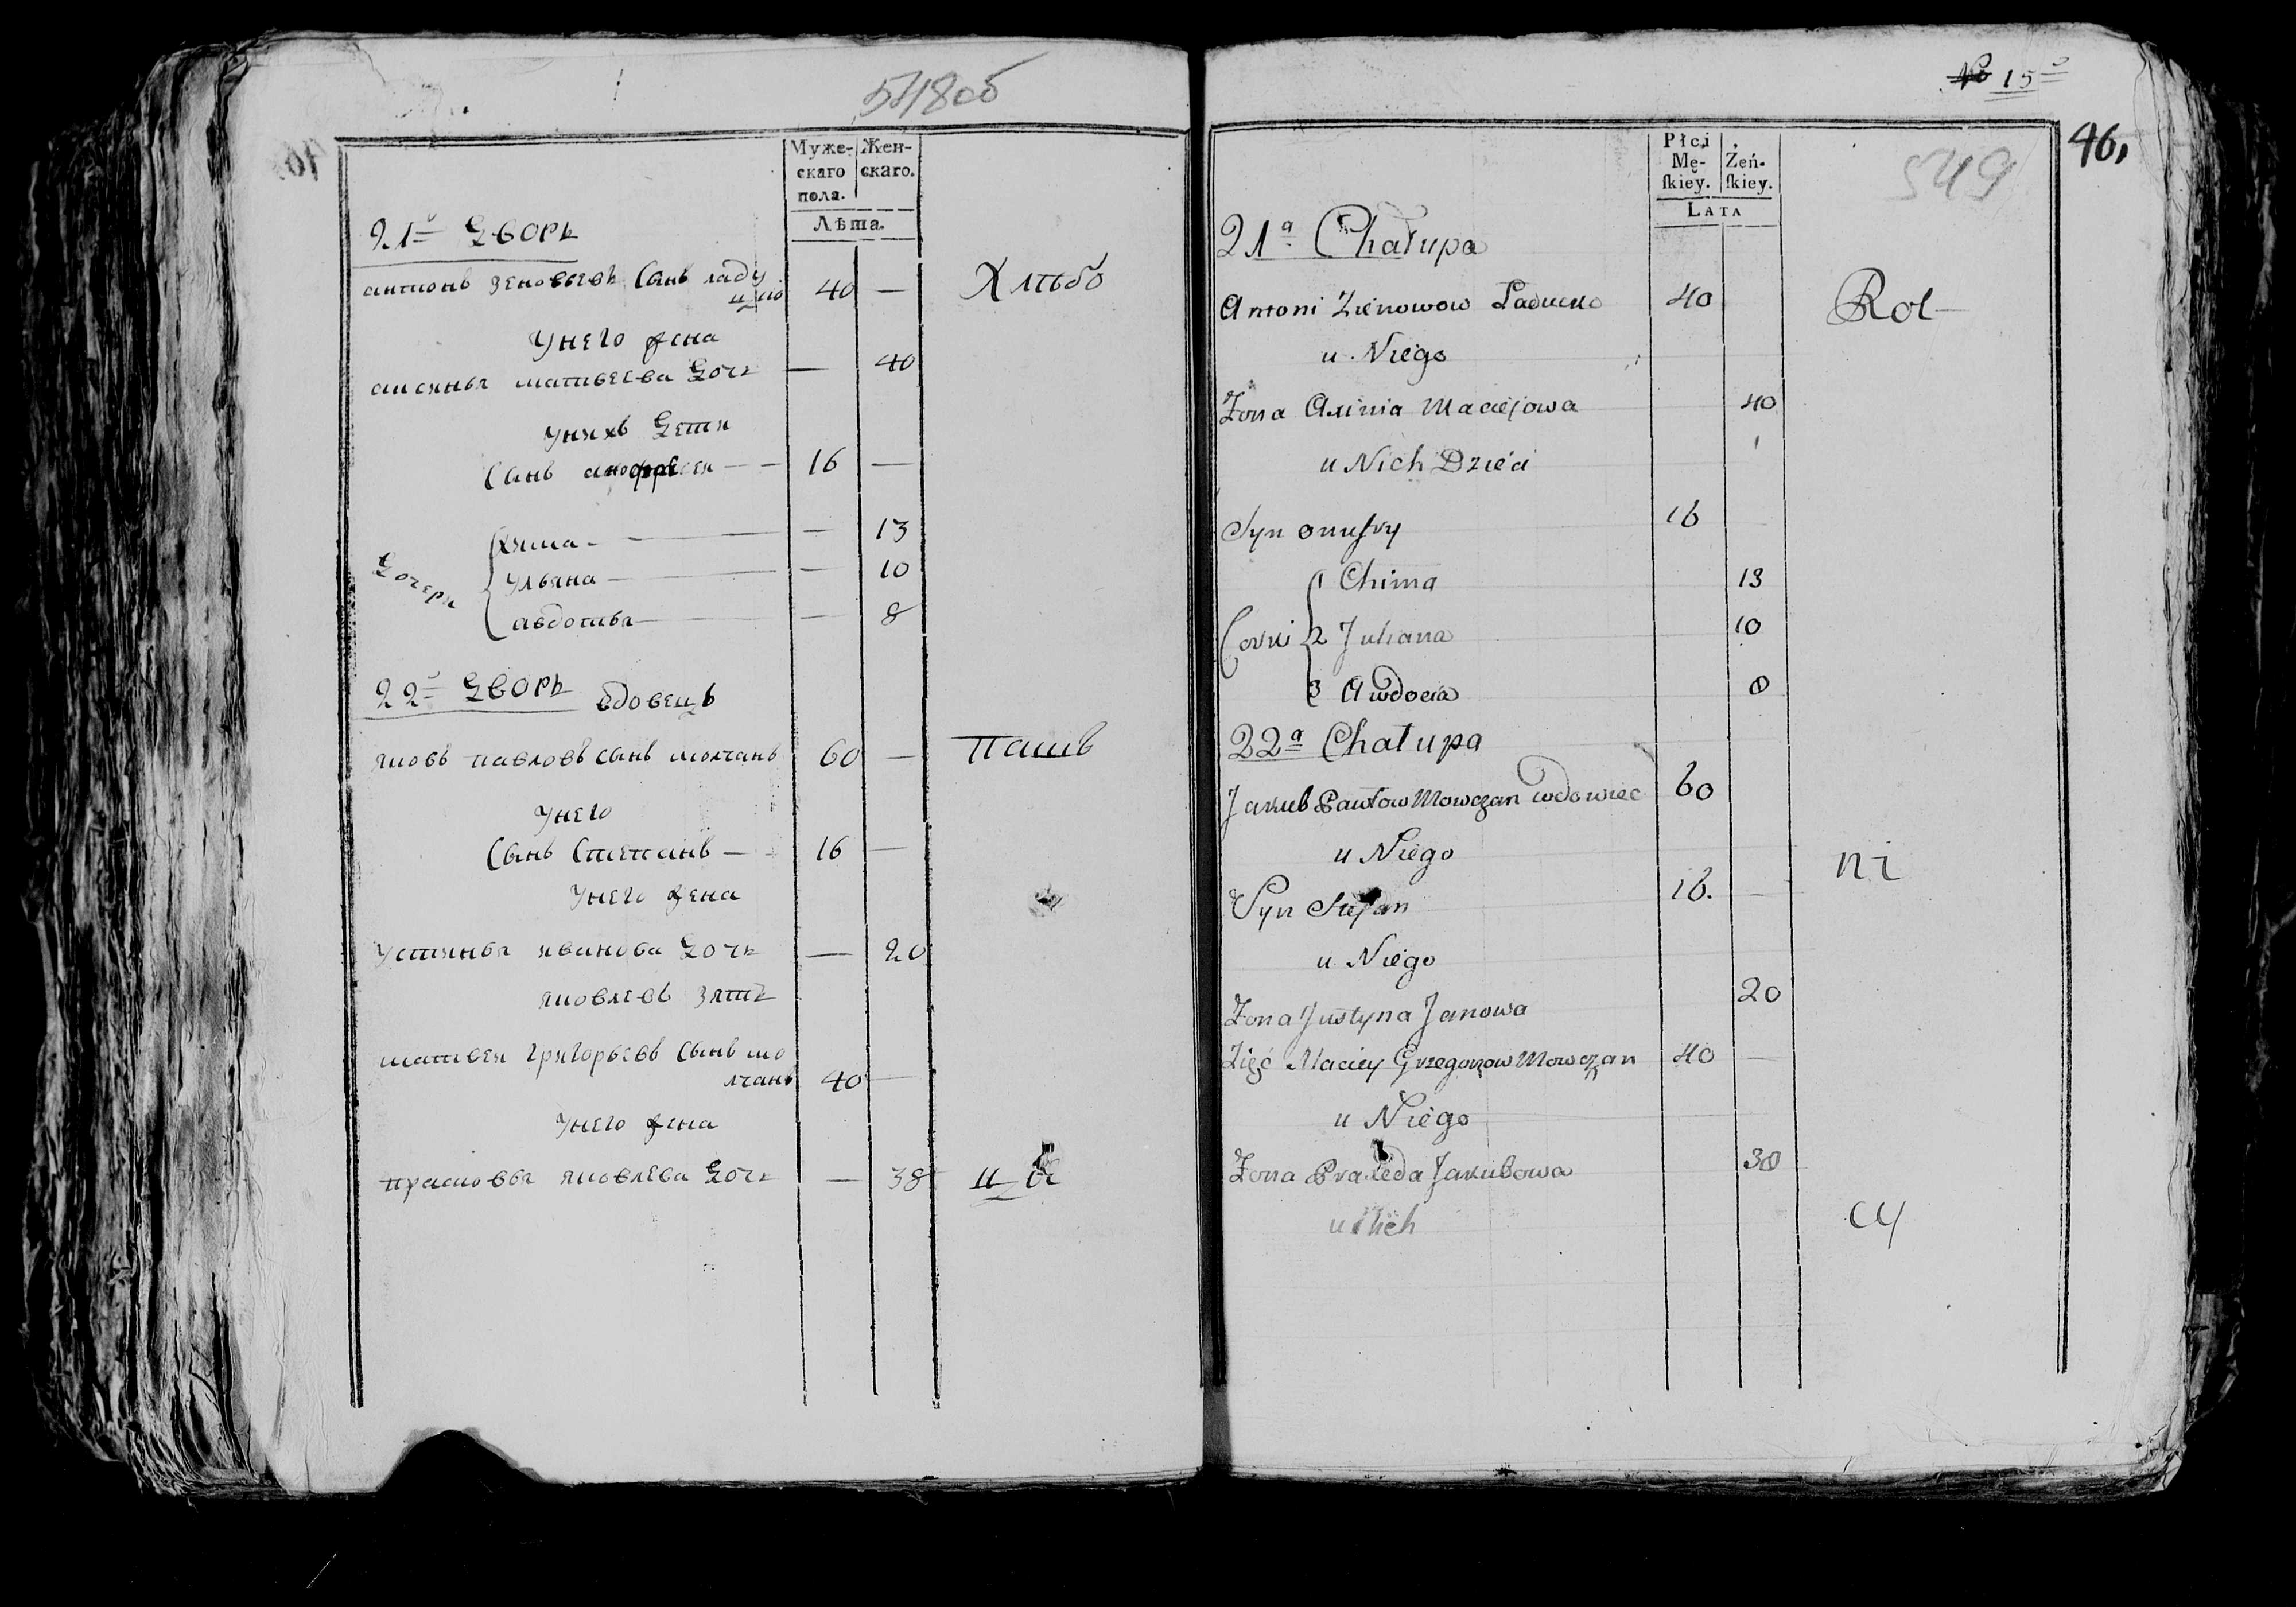 548об
Муже-
скаго
пола.
Жен-
скаго.
Лѣта.
21й дворъ
антонъ зеновьевъ сынъ ладу
цко 40 —
Хлѣбо
Унего жена
аксинья матвеева дочь — 40
Унихъ дети
Сынъ анофреи — 16 —
Дочери
Химa — — 13
Ульяна — — 10
авдотья — — 8
22й дворъ вдовецъ
яковъ павловъ сынъ молчанъ 60 —
пашъ
Унего
Сынъ Степанъ — 16 —
Унего жена
Устинья иванова дочь — 20
яковлевъ зять
матвеи григорьевъ сынъ мо
лчанъ 40 —
Унего жена
прасковья яковлева дочь — 38
№ 15й
46,
549
Płci
Mę-
ſkiey.
Żeń-
ſkiey.
LATA
21a Chałupa
Antoni Zienowow Laducko 40
Rol
u Niego
Żona Axinia Maciejowa 40
u Nich Dzieci
Syn Onufry 16
Corki
1 Chima 13
2 Juliana 10
3 Awdocia 8
22a Chałupa
Jakub Pawłow Mowczan wdowiec 60
u Niego
ni
Syn Stefan 16. —
u Niego
Żona Justyna Janowa 20
Zięć Maciey Grzegorzow Mowczan 40 —
u Niego
Żona Praxeda Jakubowa 38
u Nich
cy